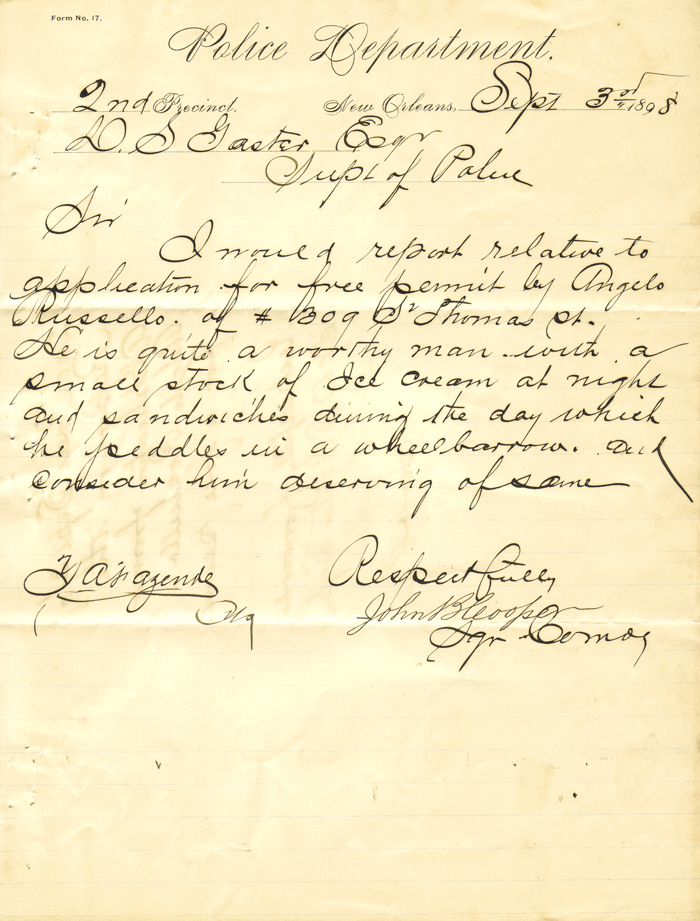 Form No. 17.
Police Department.
2nd Precinct. New Orleans, Sept 3rd 1898
D. S Gaster Esqr
Supt of Police
Sir
I would report relative to
application for free permit by Angelo
Russello. of # 309 St Thomas st.
He is quite a worthy man with a
small stock of Ice cream at night
and sandwiches during the day which
he peddles in a wheelbarrow. And
consider him deserving of same
Respectfully
John B Cooper
Sgr Comdg